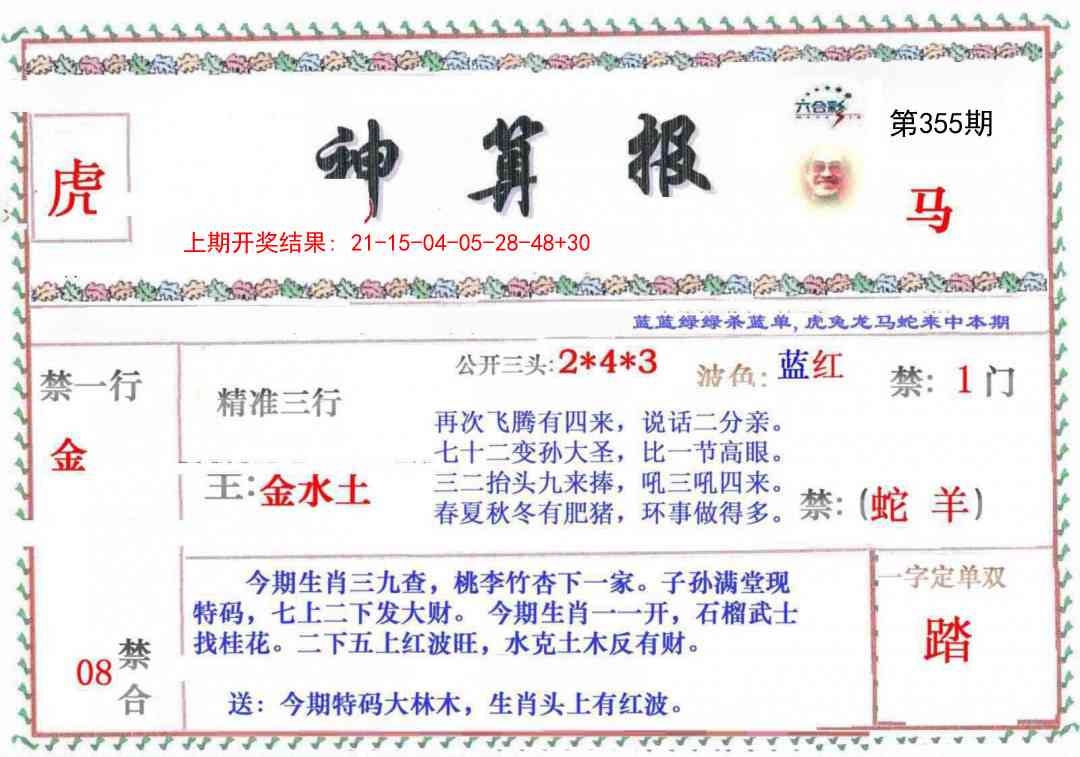 六合彩
第355期
神算报
虎
马
上期开奖结果: 21-15-04-05-28-48+30
蓝蓝绿绿杀蓝单, 虎兔龙马蛇来中本期
公开三头: 2*4*3
波色: 蓝红
禁: 1门
禁一行
金
精准三行
王: 金水土
再次飞腾有四来，说话二分亲。
七十二变孙大圣，比一节高眼。
三二抬头九来捧，吼三吼四来。
春夏秋冬有肥猪，环事做得多。
禁: (蛇 羊)
今期生肖三九查，桃李竹杏下一家。子孙满堂现
特码，七上二下发大财。 今期生肖一一开，石榴武士
找桂花。二下五上红波旺，水克土木反有财。
送：今期特码大林木，生肖头上有红波。
08
禁合
一字定单双
踏